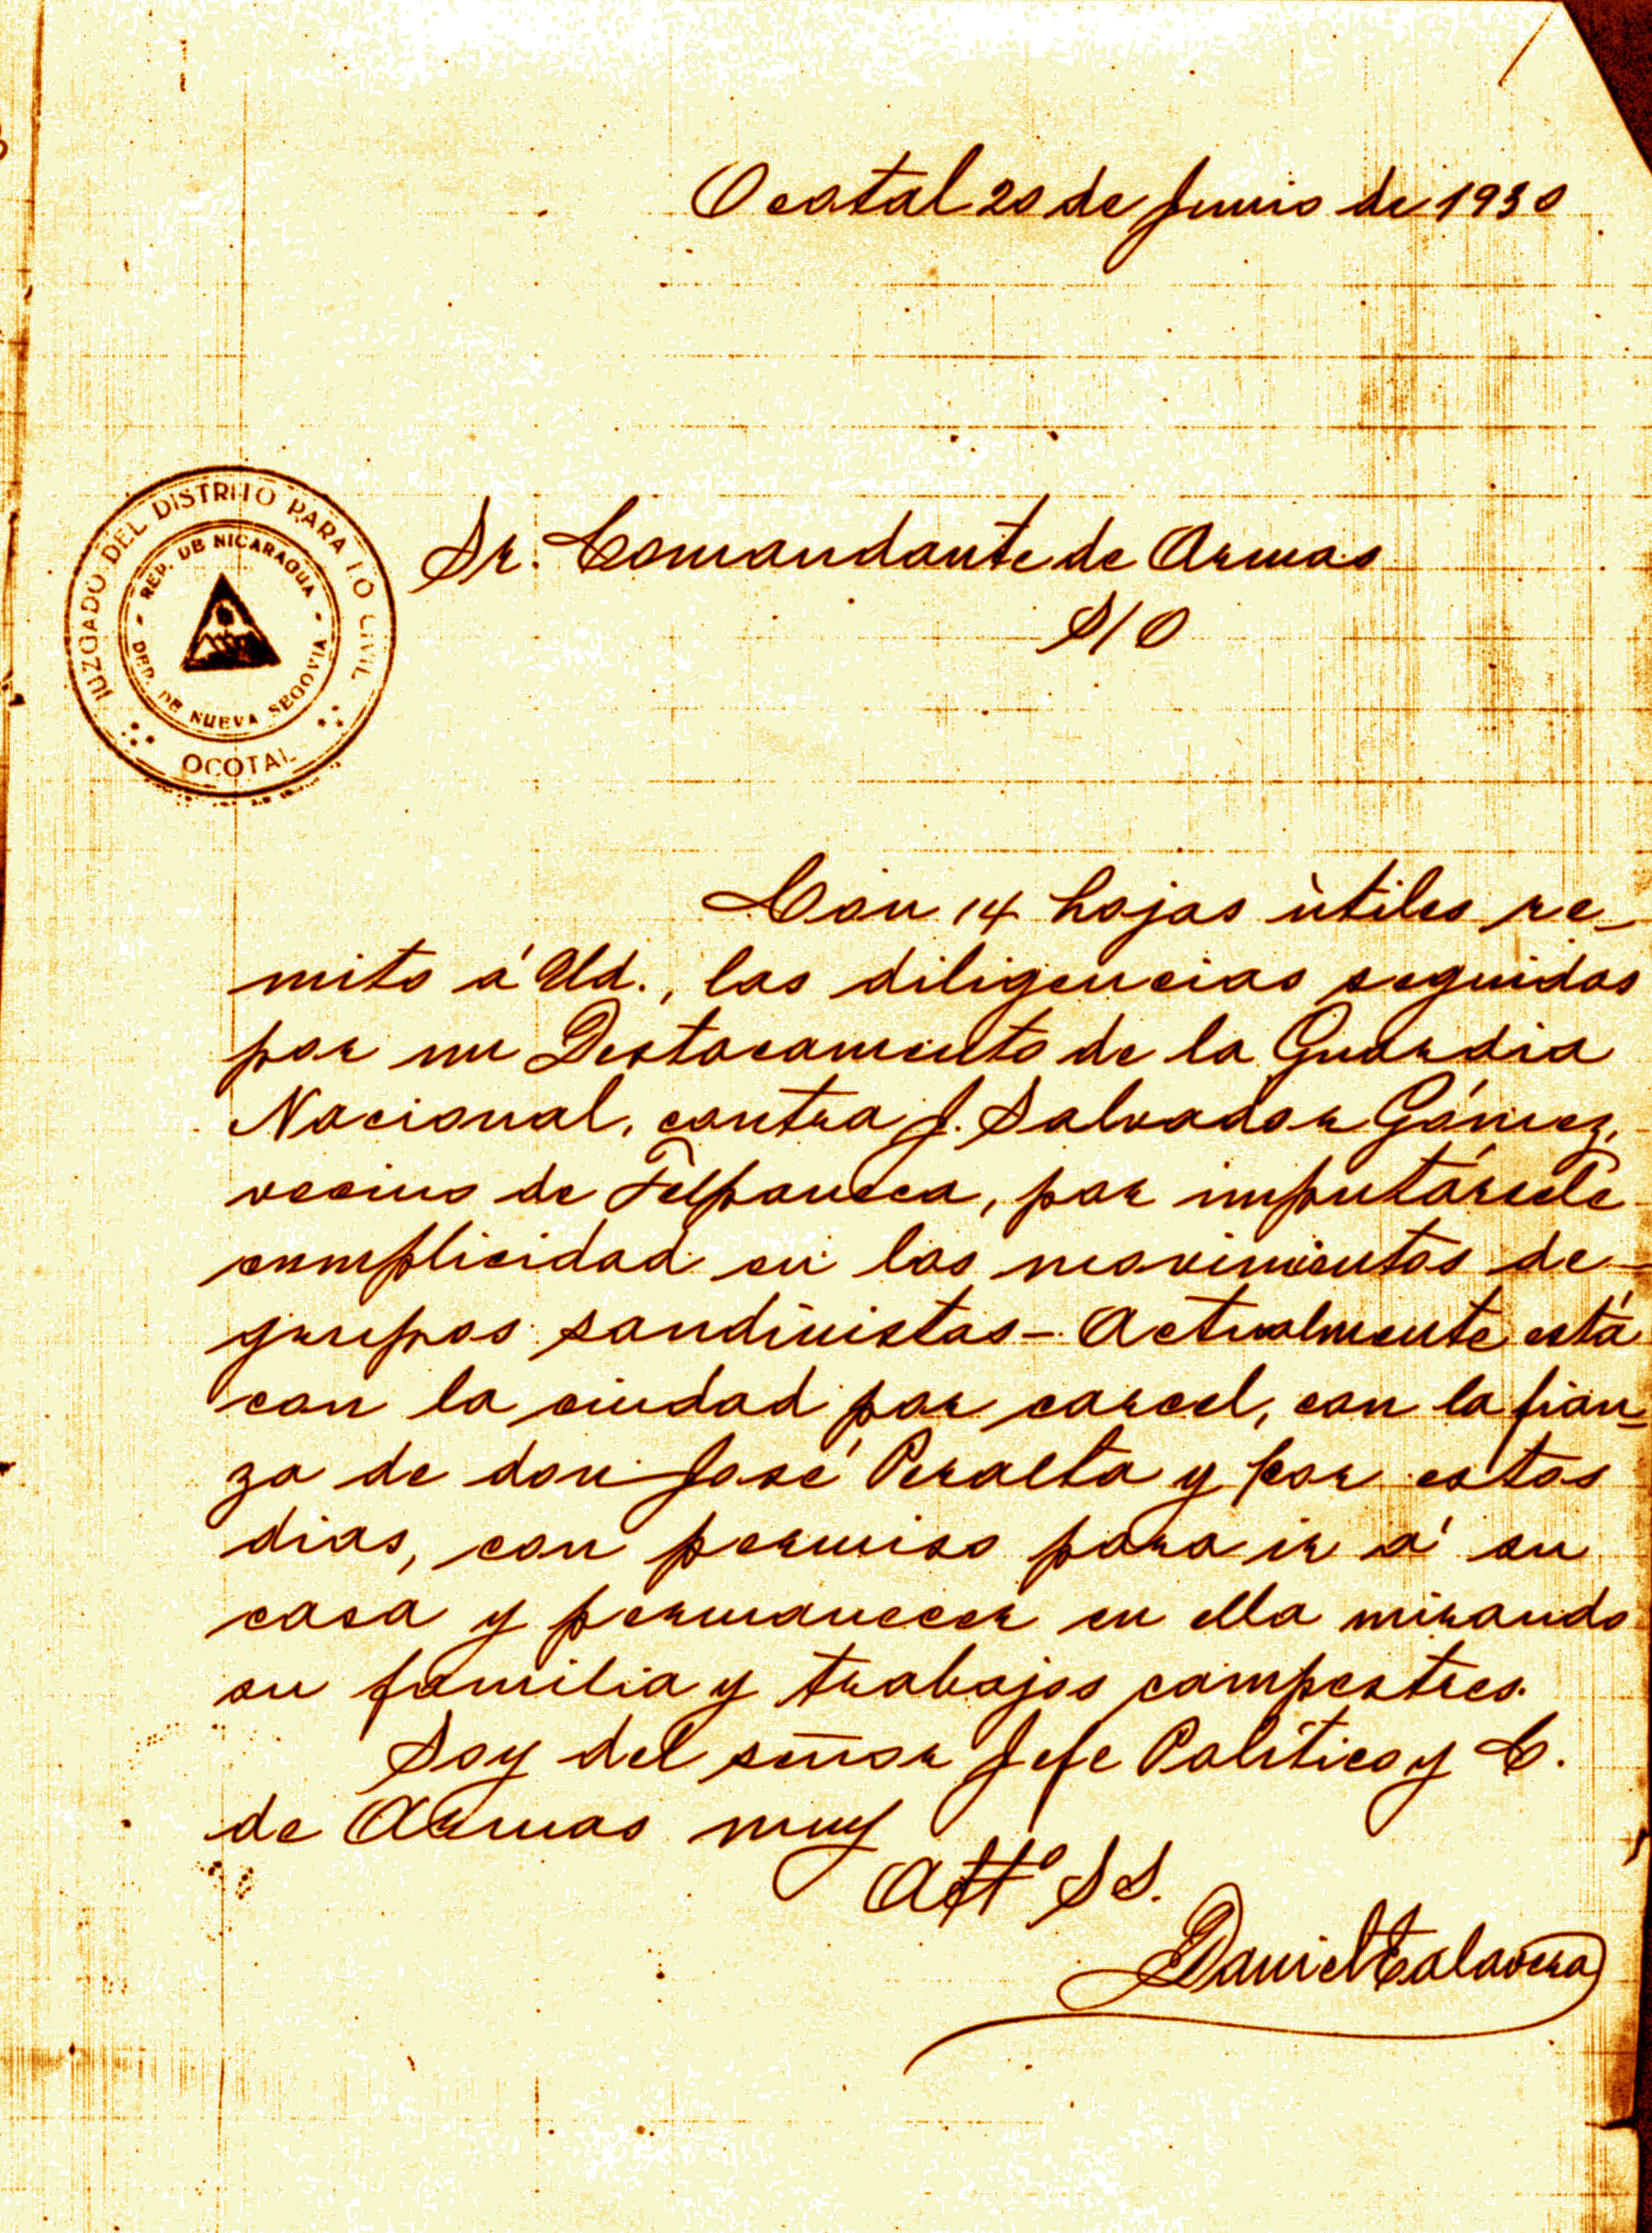 Ocotal 20 de Junio de 1930
JUZGADO DEL DISTRITO PARA LO CIVIL
REP. DE NICARAGUA
DEP. DE NUEVA SEGOVIA
OCOTAL
Sr. Comandante de Armas
S/O
Con 14 hojas útiles re-
mito á Ud., las diligencias seguidas
por un Destacamento de la Guardia
Nacional, contra J. Salvador Gómez,
vecino de Telpaneca, por imputársele
complicidad en los movimientos de
grupos sandinistas - Actualmente está
con la ciudad por carcel, con la fian-
za de don José Peralta y por estos
dias, con permiso para ir á su
casa y permanecer en ella mirando
su familia y trabajos campestres.
Soy del señor Jefe Político y C.
de Armas muy
Attº S S.
Daniel Talavera